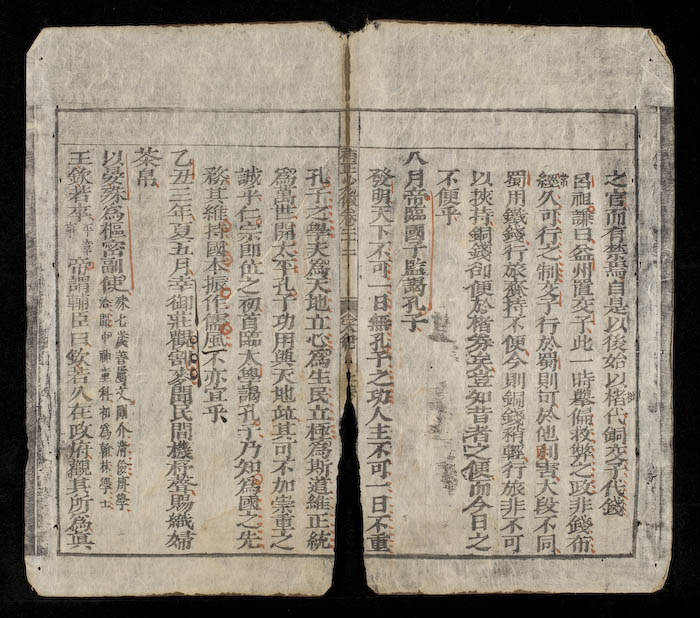 之官而有禁焉自是以後始以楮代銅交子代錢
呂祖謙曰益州置交子此一時擧偏救弊之政非錢布
經久可行之制交子行於蜀則可於他則害大段不同
常
蜀用鐵錢行旅齎持不便今則銅錢稍輕行旅非不可
以挾持銅錢却便於楮劵矣豈如昔者之便而今日之
不便乎
八月帝臨國子監謁孔子
發明天下不可一日無孔子之功人主不可一日不重
孔子之學夫爲天地立心爲生民立極爲斯道維正統
爲萬世開太平孔子功用與天地竝其可不加崇重之
誠乎仁宗卽位之初首臨太學謁孔子乃知爲國之先
務其維持國本振作儒風不亦宜乎
乙丑三年夏五月幸御莊觀刈麥聞民間機杼聲賜織婦
茶帛
以晏殊爲樞密副使殊七歲善屬文
神童
爲翰林學士
王欽若卒
帝謂輔臣曰欽若久在政府觀其所爲眞